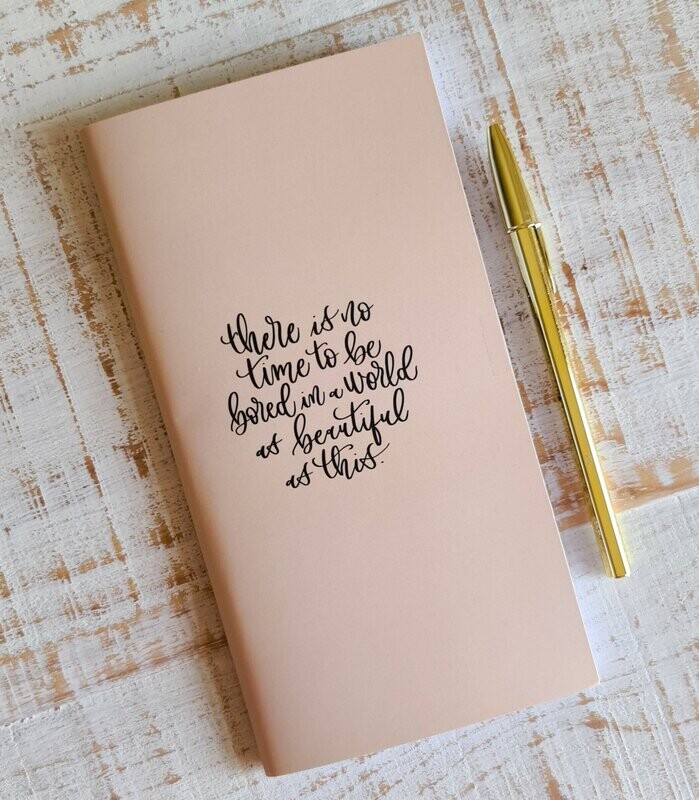 there is no
time to be
bored in a world
as beautiful
as this.